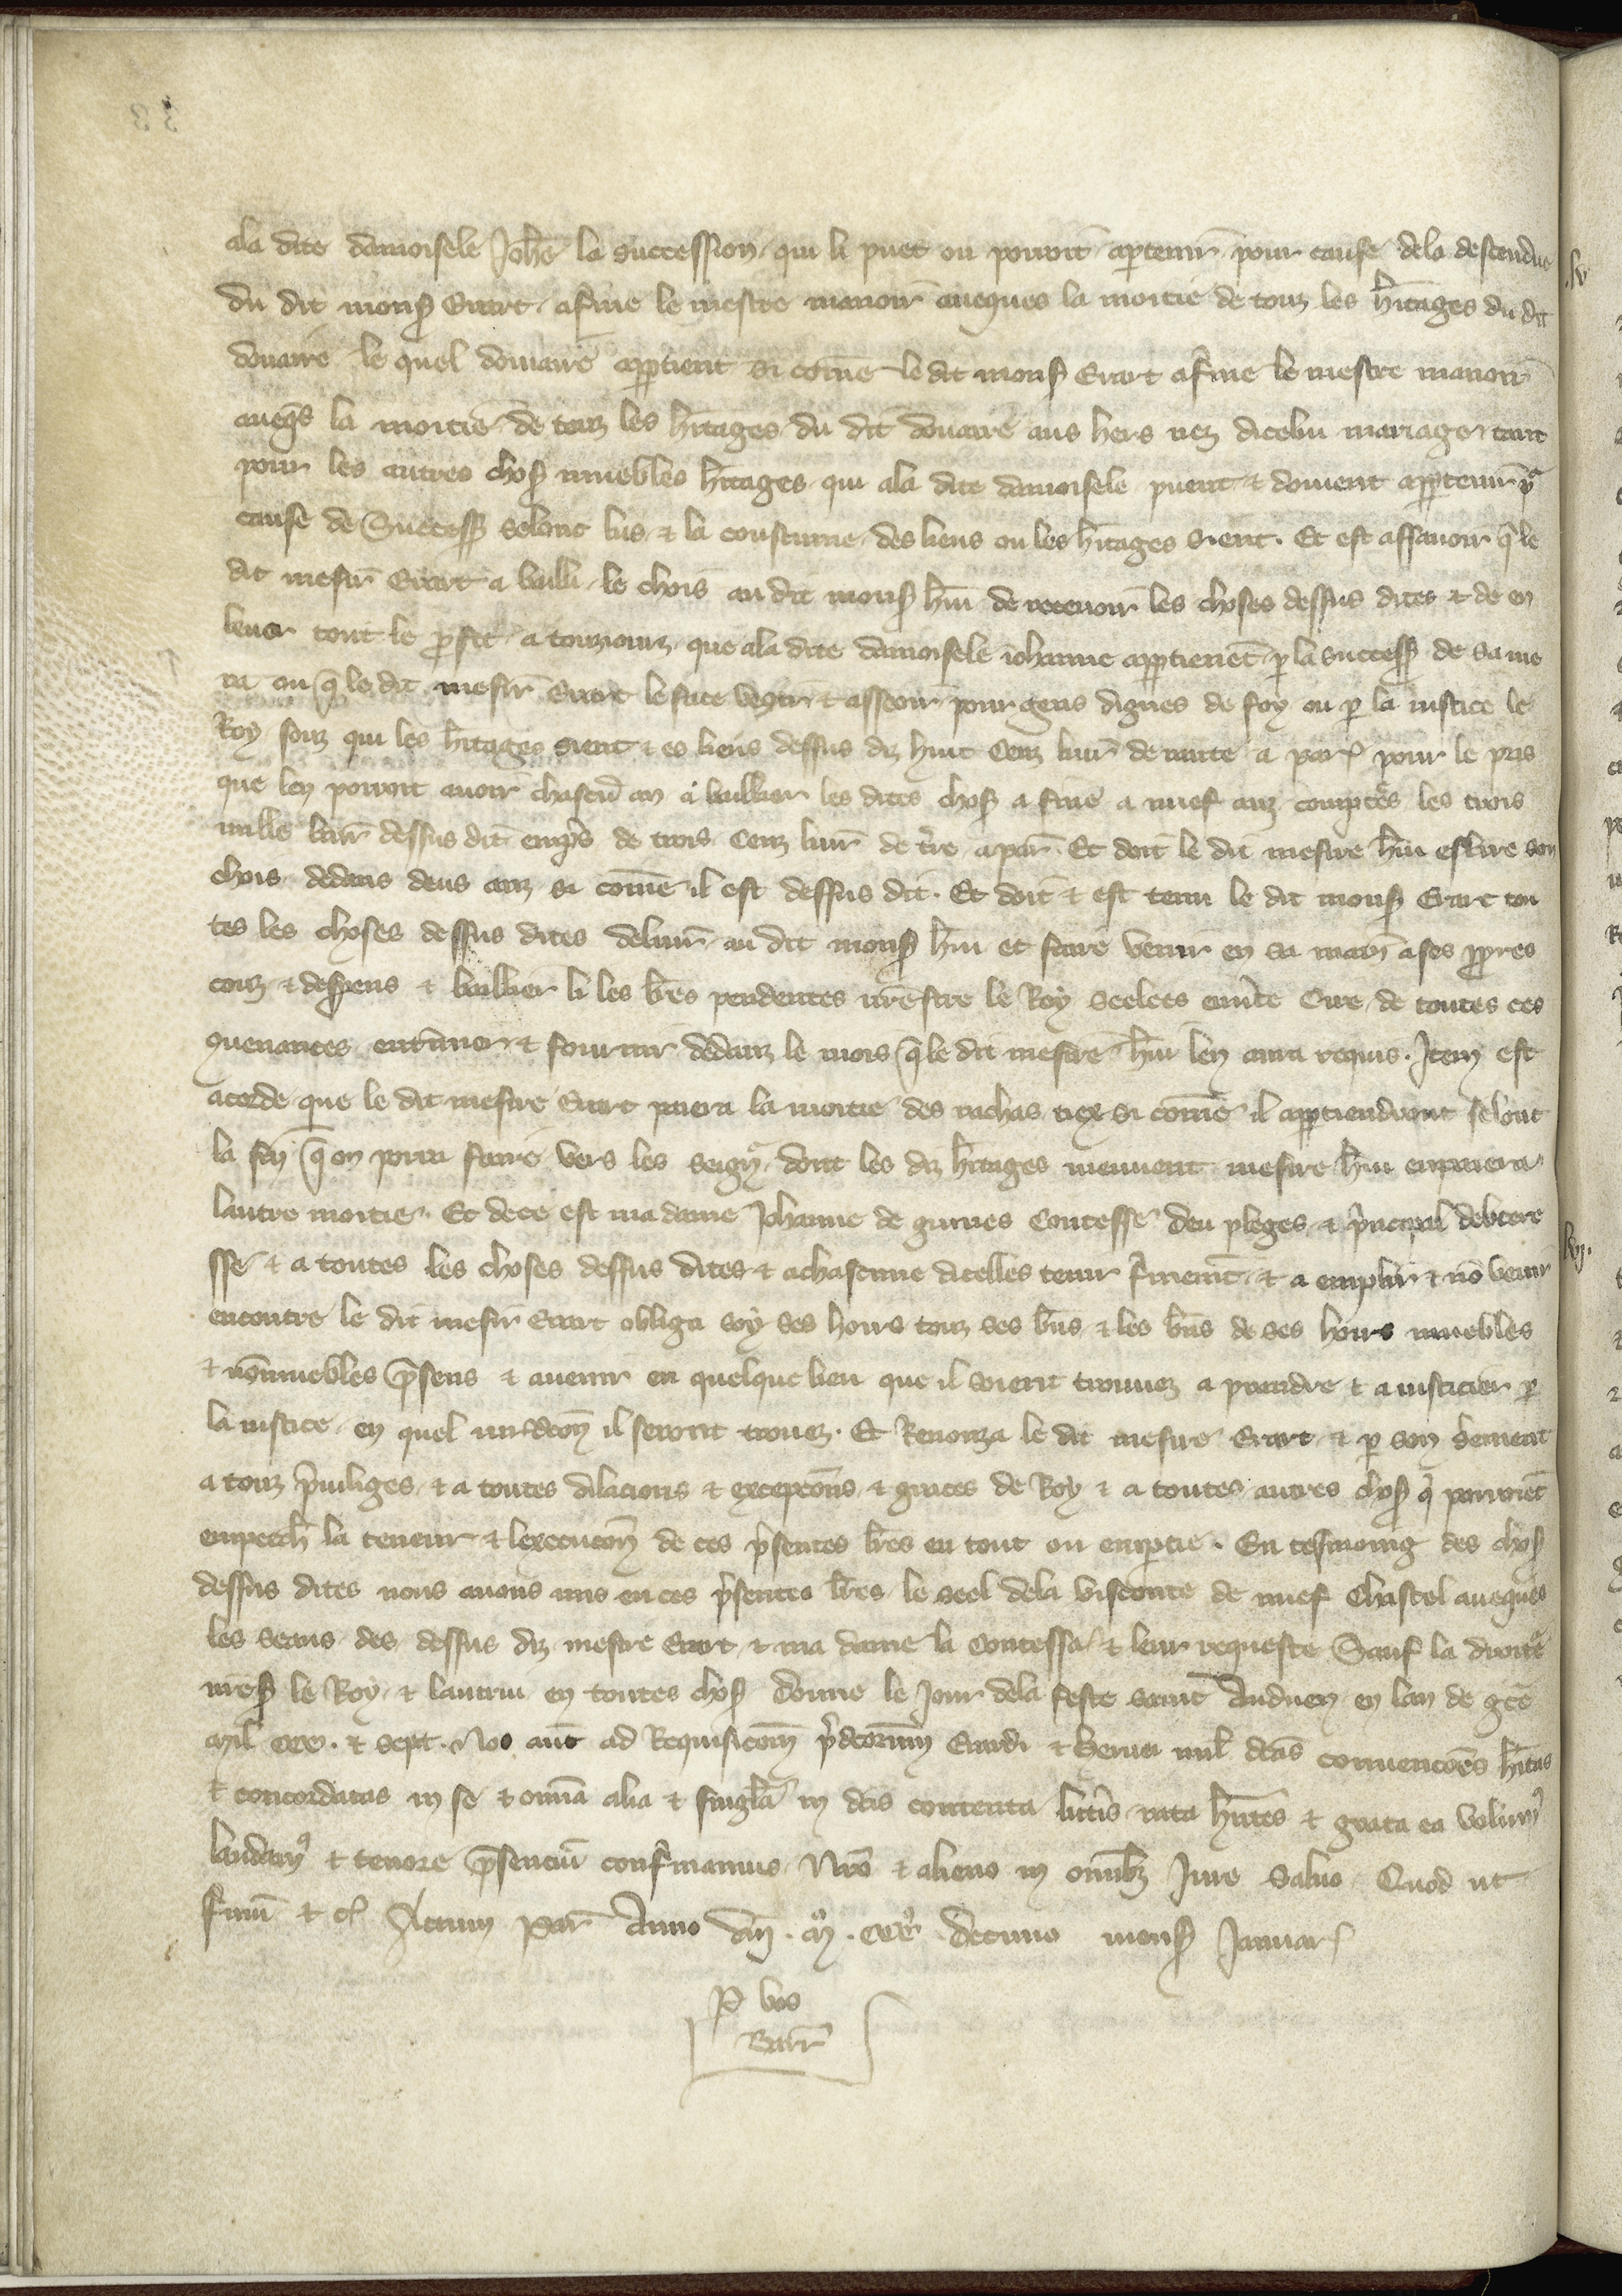 ala dite damoisele Joh̄e la succession qui li puet ou porroit apartenir pour cause dela descendue
du dit monsʳ Erart afine le mestre manoir aueques la moitie de touz les h̄itages du dit
douaire le quel douuaire appartient si cōme le dit monsʳ Erart aferme le mestre manoir
aueqs la moitie de touz les h̄itages du dit douaire aus hers nez dicelui mariage tant
pour les autres chosʳ muebles h̄itages qui ala dite damoisele puent & doiuent appartenir pʳ
cause de Successʳ selonc lus & la coustume des lieus ou les h̄itages sieent. Et est assauoir q̄ le
dit mesirʳ Erart a bailli le chois au dit monsʳ h̄ui de receuoir les choses dessus dites & de en
leuer tout le p̄fit a touziourz que ala dite damoisele iohanne appartienēt p la successʳ de sa me
re ou q̄ le dit mesirʳ Erart le face & asseoir pour gens dignes de foy ou p la iustice le
Roy souz qui les h̄itages sieent & es lieus dessus diz huit Cenz liur̄ de rante a parʳ pour le pris
que len porroit auoir chascū an a baillier les dites chosʳ a fine a nuef anz comptes les trois
mille liur̄ dessus dit enprés de trois Cenz liur̄ de t̄re apar̄. Et doit le dit mesire h̄ui eslire son
chois dedans deus anz si cōme il est dessus dit. Et doit & est tenu le dit monsʳ Erart tou
tes les choses dessus dites deliurʳ au dit monsʳ h̄ui et faire venir en sa main a ses ppres
couz & despens & baillier li les l̄res pendentes nr̄e sire le Roy seelees en verte Cire de toutes ces
quenances enterner & fournir dedanz le mois q̄ le dit mesire h̄ui len aura requis. Item est
acorde que le dit mesire Erart paiera la moitie des rachas tiex si cōme il appartiendront selont
la fin q̄ on porra faire vers les seignʳ dont les diz h̄itages meuuent mesire h̄ui enpaiera
lautre moitie. Et de ce est ma dame Johanne de guines Contesse deu pleges & p̄ncipal debtere
sse & a toutes les choses dessus dites & achascune dicelles tenir f̄mement & a emplir & nō venir
encontre le dit mesirʳ Erart obliga soy ses hoirs touz ses b̄ns & les b̄ns de ses hoirs muebles
& nōnmuebles p̄sens & auenir en quelque lieu que il soient trouuez a prendre & a iusticier p
la iustice en quel iur̄dicōn il seront trouez. Et Renonza le dit mesire Erart & p son s̄ement
a touz p̄uiliges & a toutes dilacions & excepcōns & graces de Roy & a toutes autres chosʳ q̄ porroiēt
empeech̄ la teneur & lexecucōn de ces p̄sentes l̄res en tout ou enptie. En tesmoing des chosʳ
dessus dites nous auons mis en ces p̄sentes l̄res le seel dela visconte de nuef Chastel aueques
les seaus des dessus diz mesire Erart & ma dame la Contesse & leur requeste Sauf la droitʳ
nr̄esʳ le Roy & lautrui en toutes chosʳ donne le Jour dela feste saint Andueu en lan de gce
Mil ccc. & sept. Nos aut̄ ad Requisicōm p̄dcorum Erardi & heruei mil̄ dcās conuencōes h̄itas
& concordatas in se & omīa alia & singl̄a in dcis contenta litt̄is rata h̄ntes & grata ea volumꝰ
laudamꝰ & tenore p̄senciū confirmamus Nrō & alieno in omībꝫ Jure saluo. Quod ut
firmū & cʳ Actum Parʳ Anno dn̄i. Mͦ. cccͦ decimo mensʳ Januarʳ
P vos
Barr̄